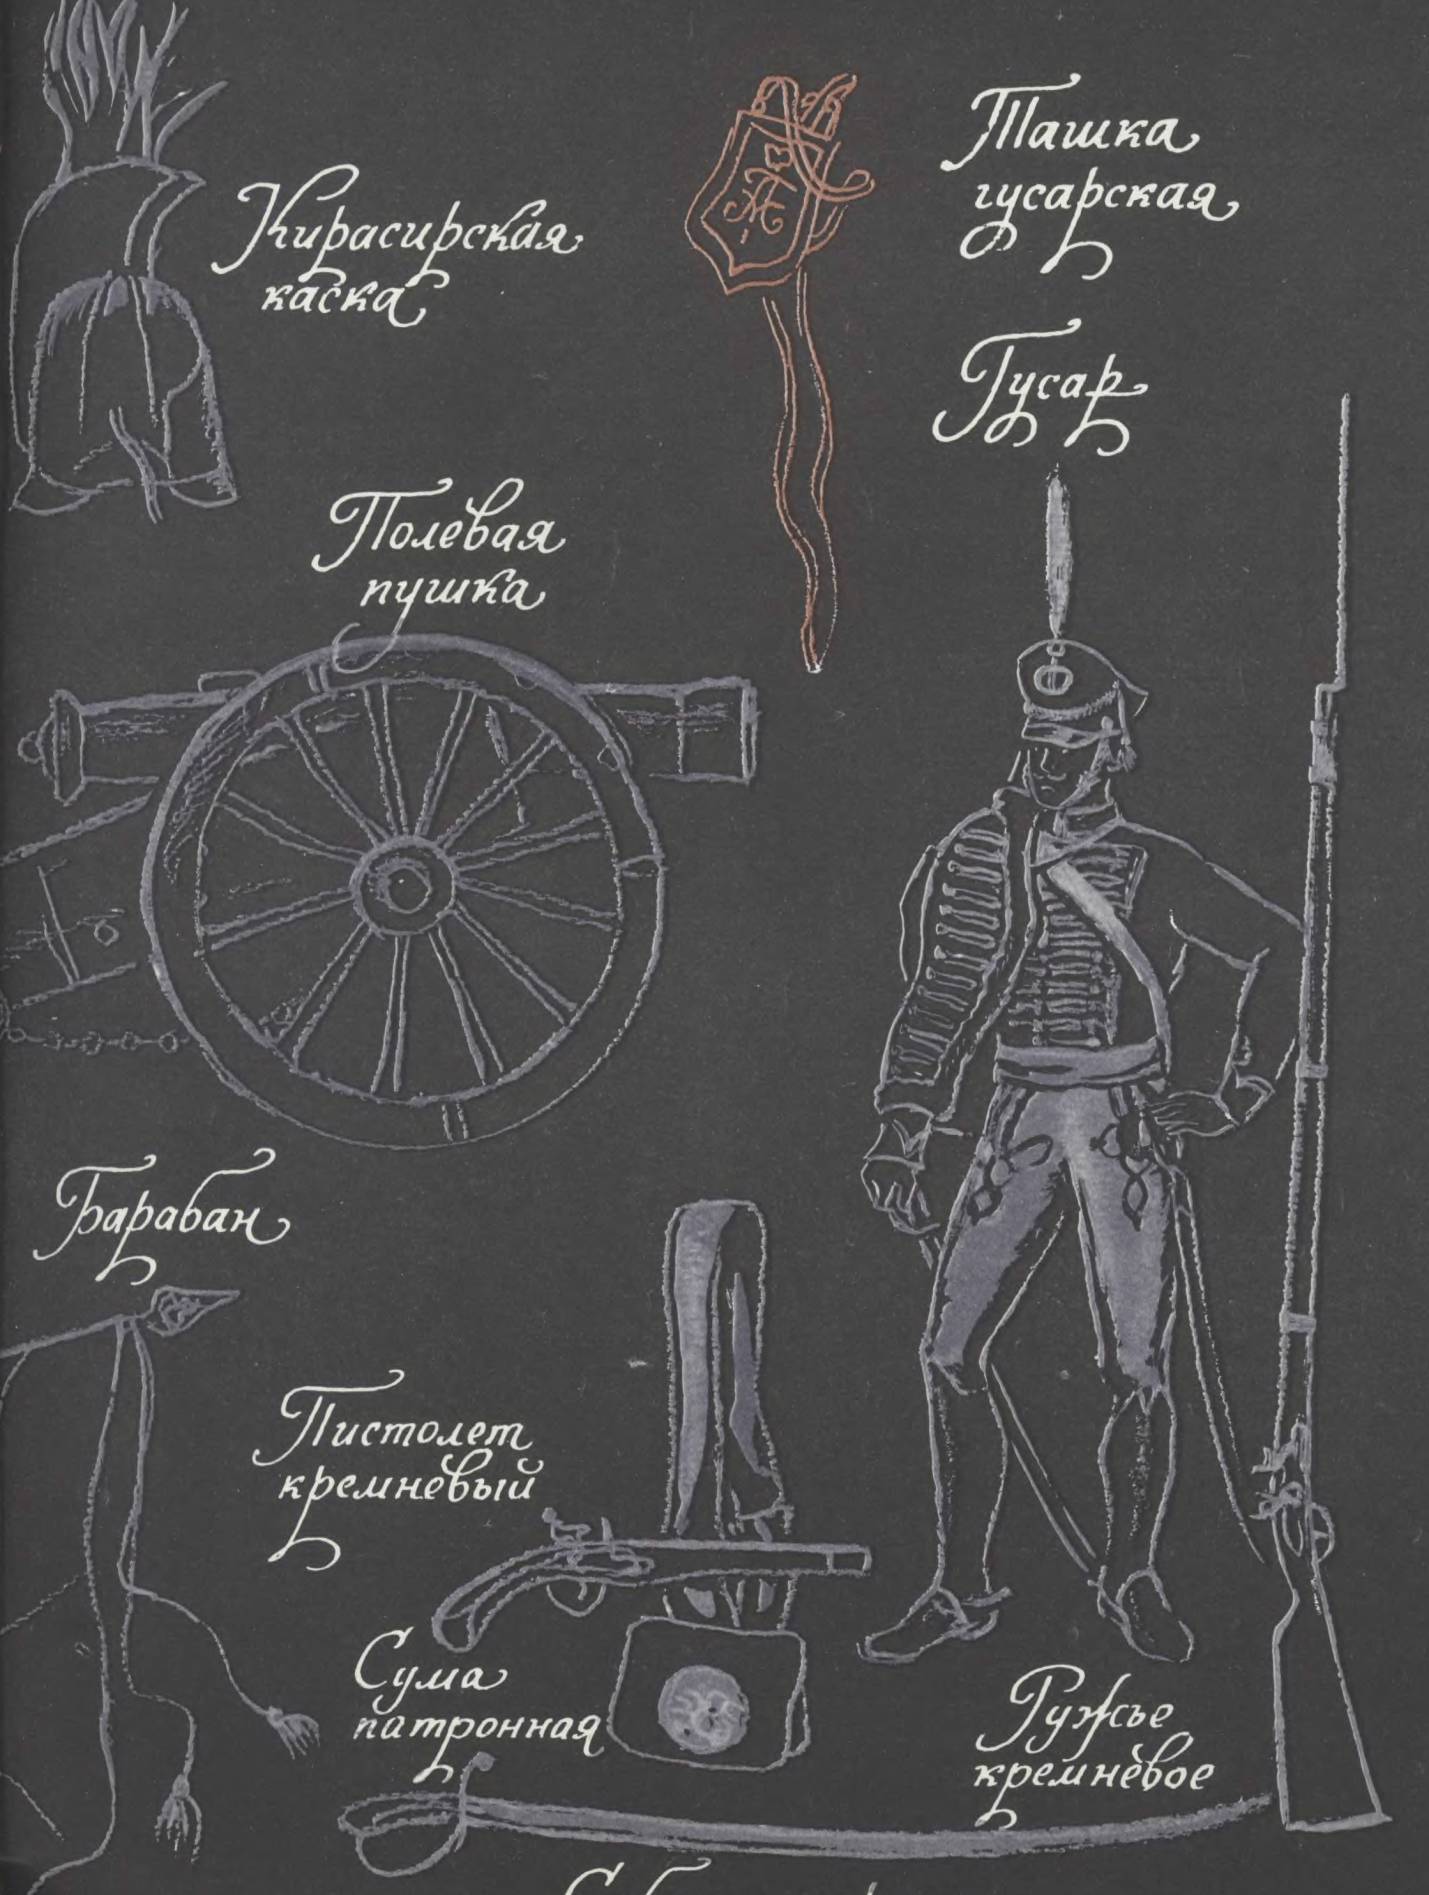 Кирасирская
каска
Ташка
гусарская
Гусар
Полевая
пушка
Барабан
Пистолет
кремнёвый
Сума
патронная
Ружье
кремнёвое